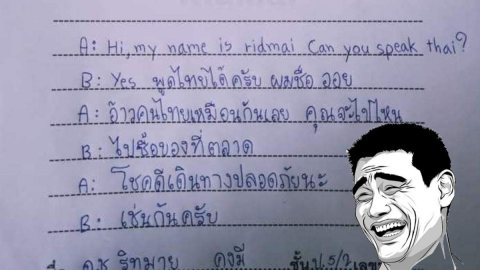 A: Hi, my name is ridmai Can you speak thai?
B: Yes พูดไทยได้ครับ ผมชื่อ ออย
A: อ้าวคนไทยเหมือนกันเลย คุณจะไปไหน
B: ไปซื้อของที่ตลาด
A: โชคดีเดินทางปลอดภัยนะ
B: เช่นกันครับ
ด.ช. ริทมาย คงมี ชั้น ป.5/2